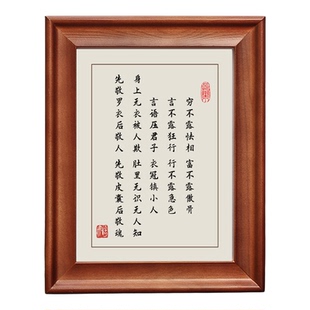 穷不露怯相 富不露傲骨
言不露狂行 行不露急色
言语压君子 衣冠镇小人
身上无衣被人欺 肚里无识无人知
先敬罗衣后敬人 先敬皮囊后敬魂